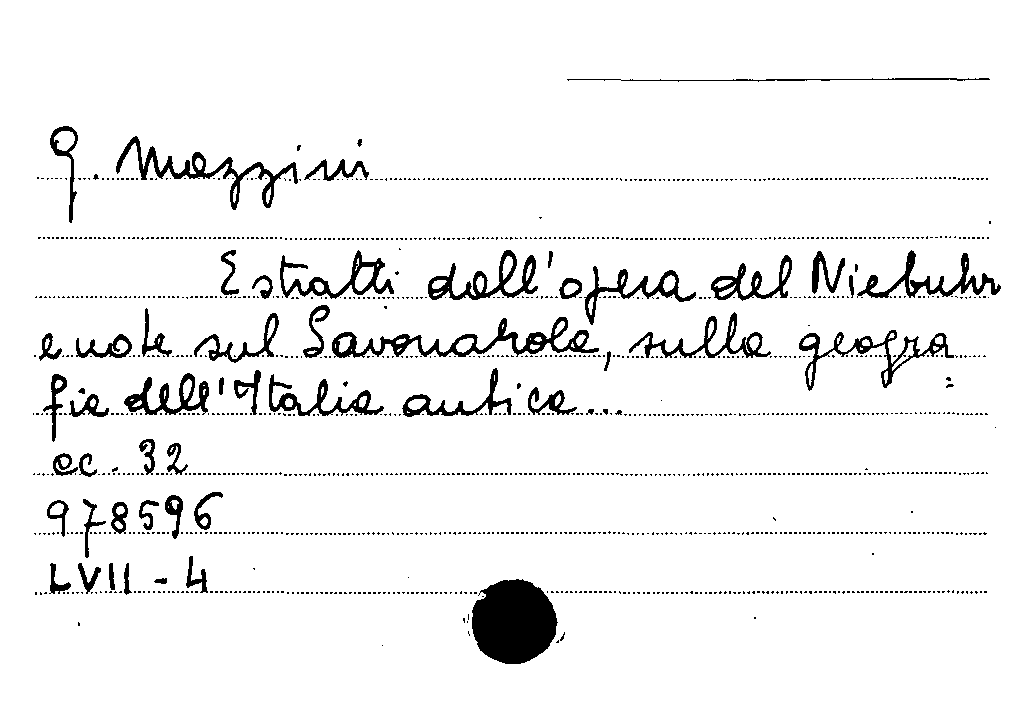 G. Mazzini
Estratti dall'opera del Niebuhr
e note sul Savonarola, sulla geogra
fia dell'Italia antica...
cc. 32
978596
LVII - 4